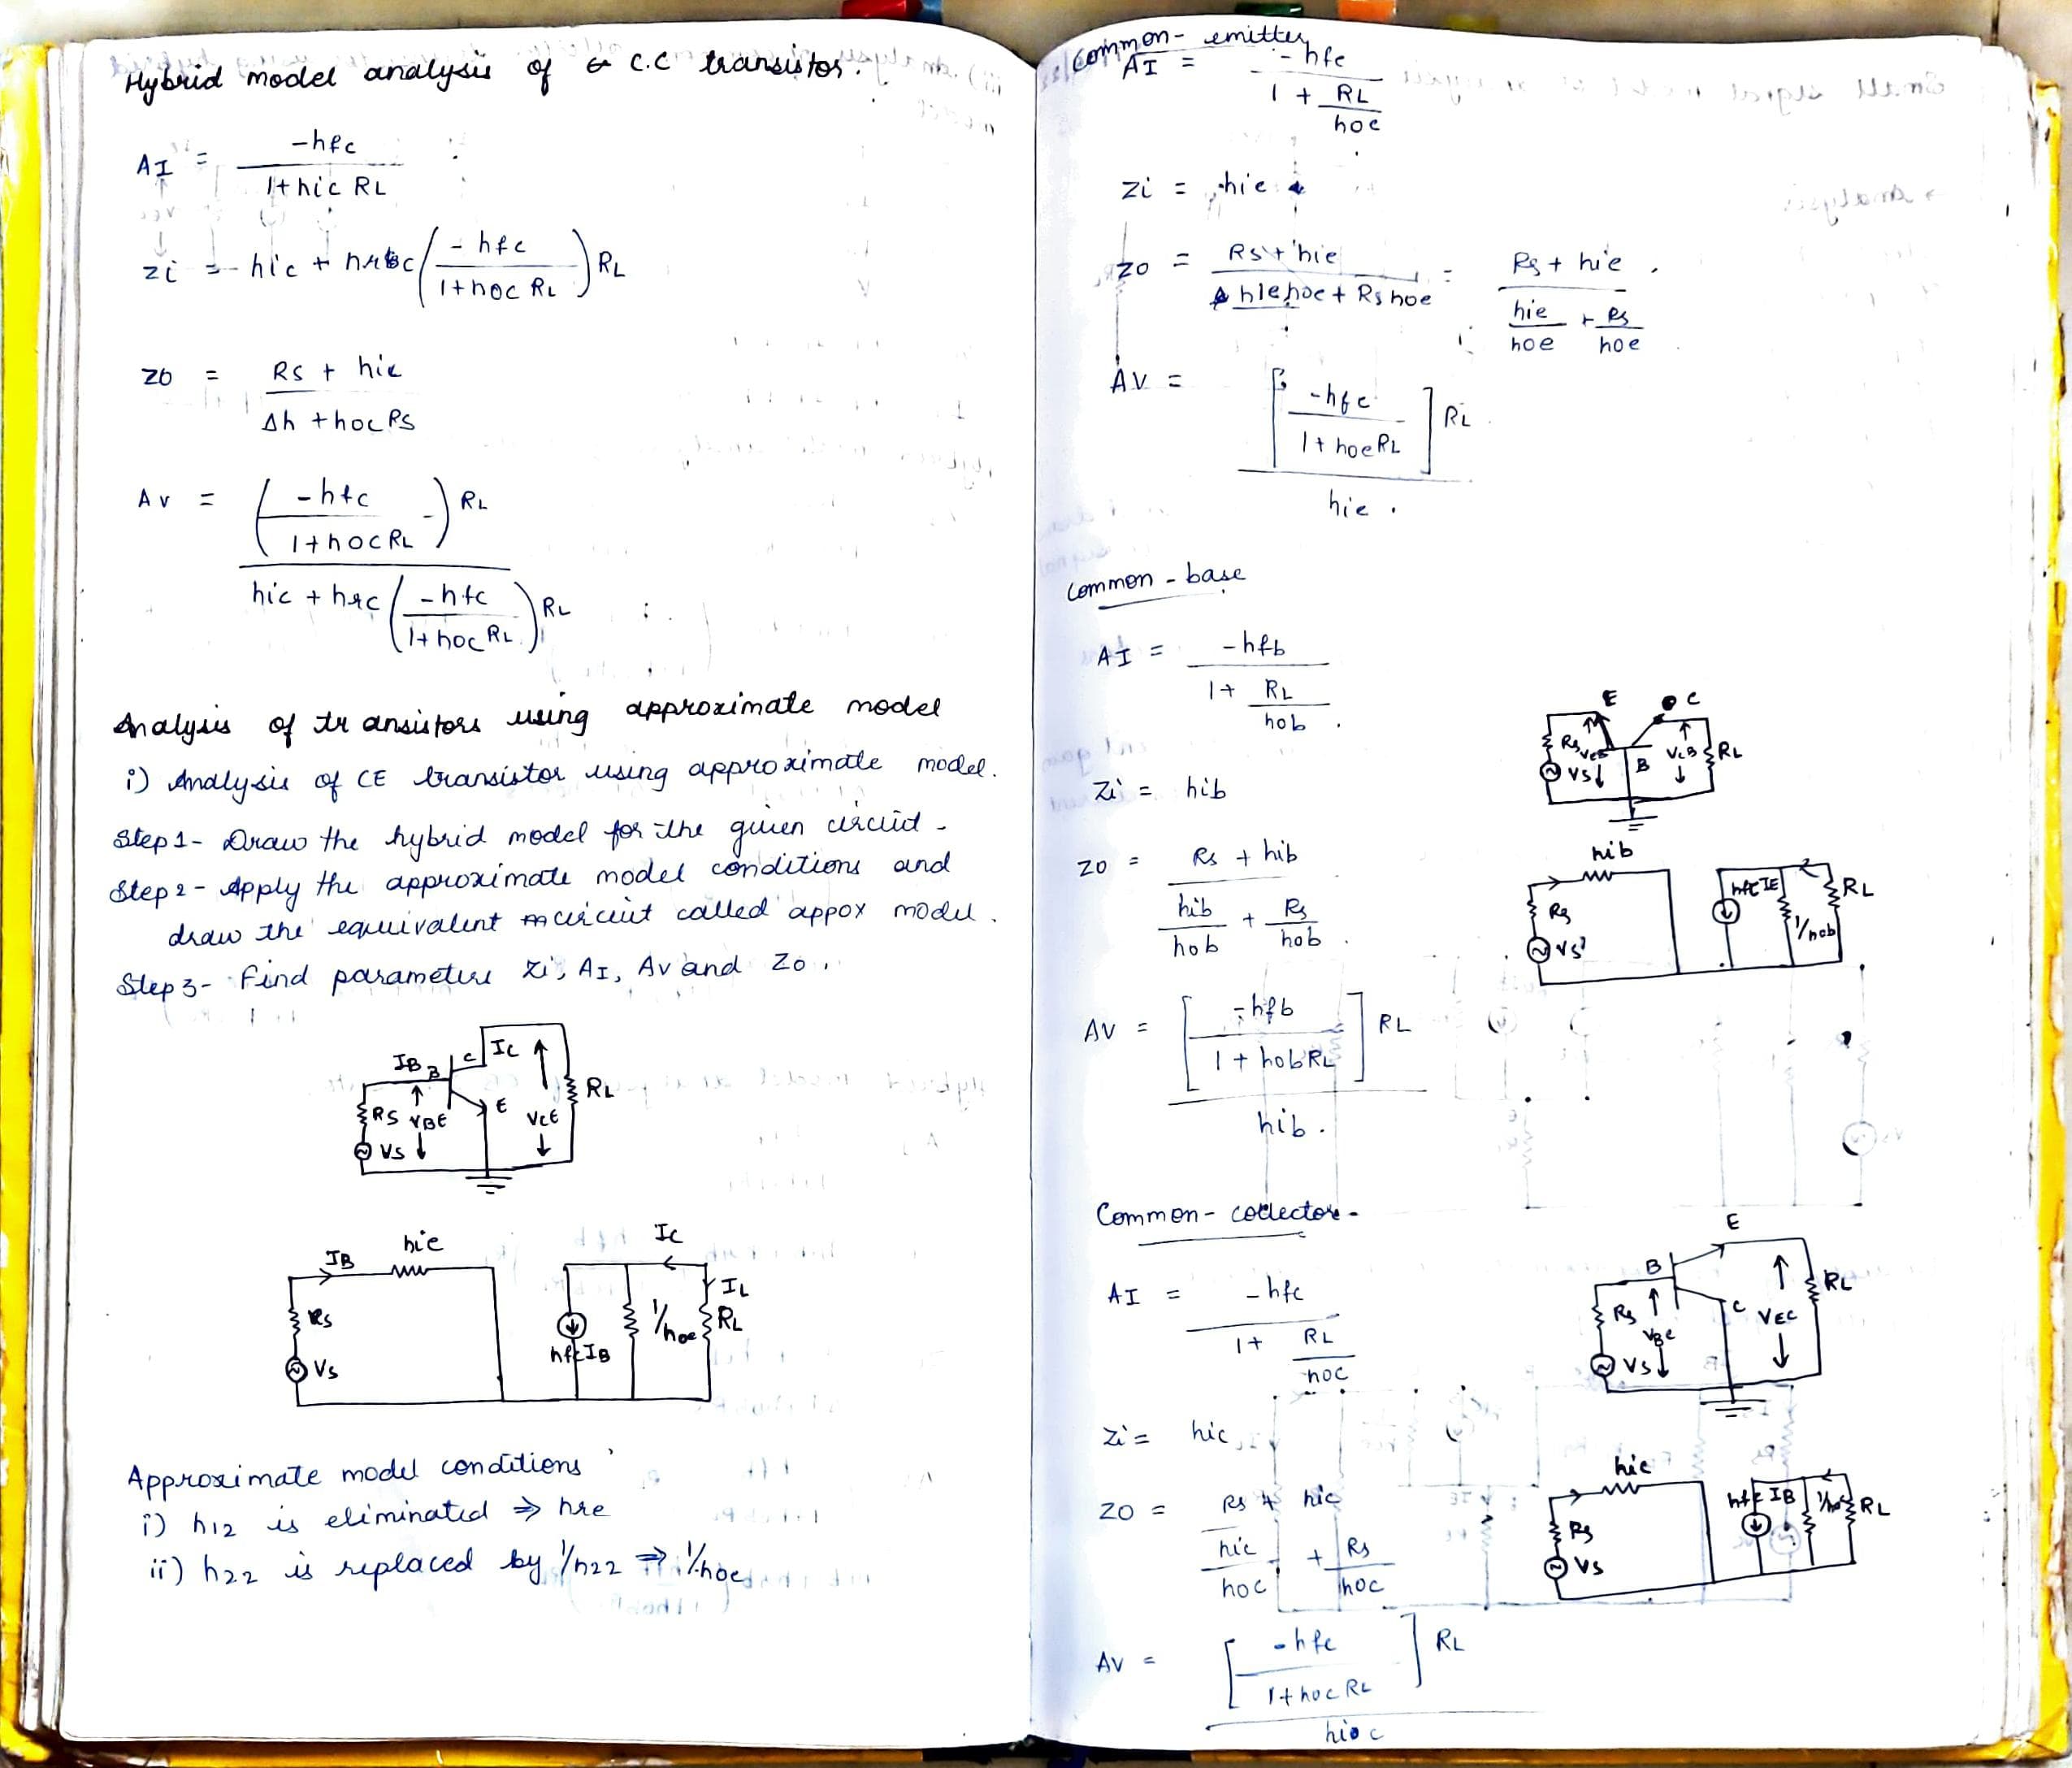 Hybrid model analysis of C.C transistor.
AI = -hfc / 1+hic RL
Zi = hic + hrc ( -hfc / 1+hoc RL ) RL
Zo = Rs + hic / Δh + hoc Rs
Av = ( -hfc / 1+hoc RL ) RL / hic + hrc ( -hfc / 1+hoc RL ) RL
Analysis of transistors using approximate model
i) Analysis of CE transistor using approximate model.
Step 1- Draw the hybrid model for the given circuit.
Step 2- Apply the approximate model conditions and
draw the equivalent circuit called appox model.
Step 3- Find parameters Zi, AI, Av and Zo.
IB B C IC
RS VBE E VCE RL
VS
IB hie IC
Rs hfe IB 1/hoe IL RL
Vs
Approximate model conditions
i) h12 is eliminated ⇒ hre
ii) h22 is replaced by 1/h22 ⇒ 1/hoe
Common-emitter
AI = -hfe / 1 + RL/hoe
Zi = hie
Zo = Rs + hie / hiehoe + Rs hoe = Rs + hie / hie/hoe + Rs/hoe
AV = [ -hfe / 1+hoeRL ] RL / hie.
Common-base
AI = -hfb / 1+ RL/hob.
Zi = hib
Zo = Rs + hib / hib/hob + Rs/hob.
AV = [ -hfb / 1+hobRL ] RL / hib.
E C
Rs VEB B VCB RL
Vs
hib
Rs hfc IE 1/hob RL
Vs
Common-collector-
AI = -hfc / 1+ RL/hoc
Zi = hic
Zo = Rs + hic / hic/hoc + Rs/hoc
AV = [ -hfc / 1+hoc RL ] RL / hioc
E
B
Rs VBC C VEC RL
Vs
hic
Rs hfc IB 1/hoc RL
Vs